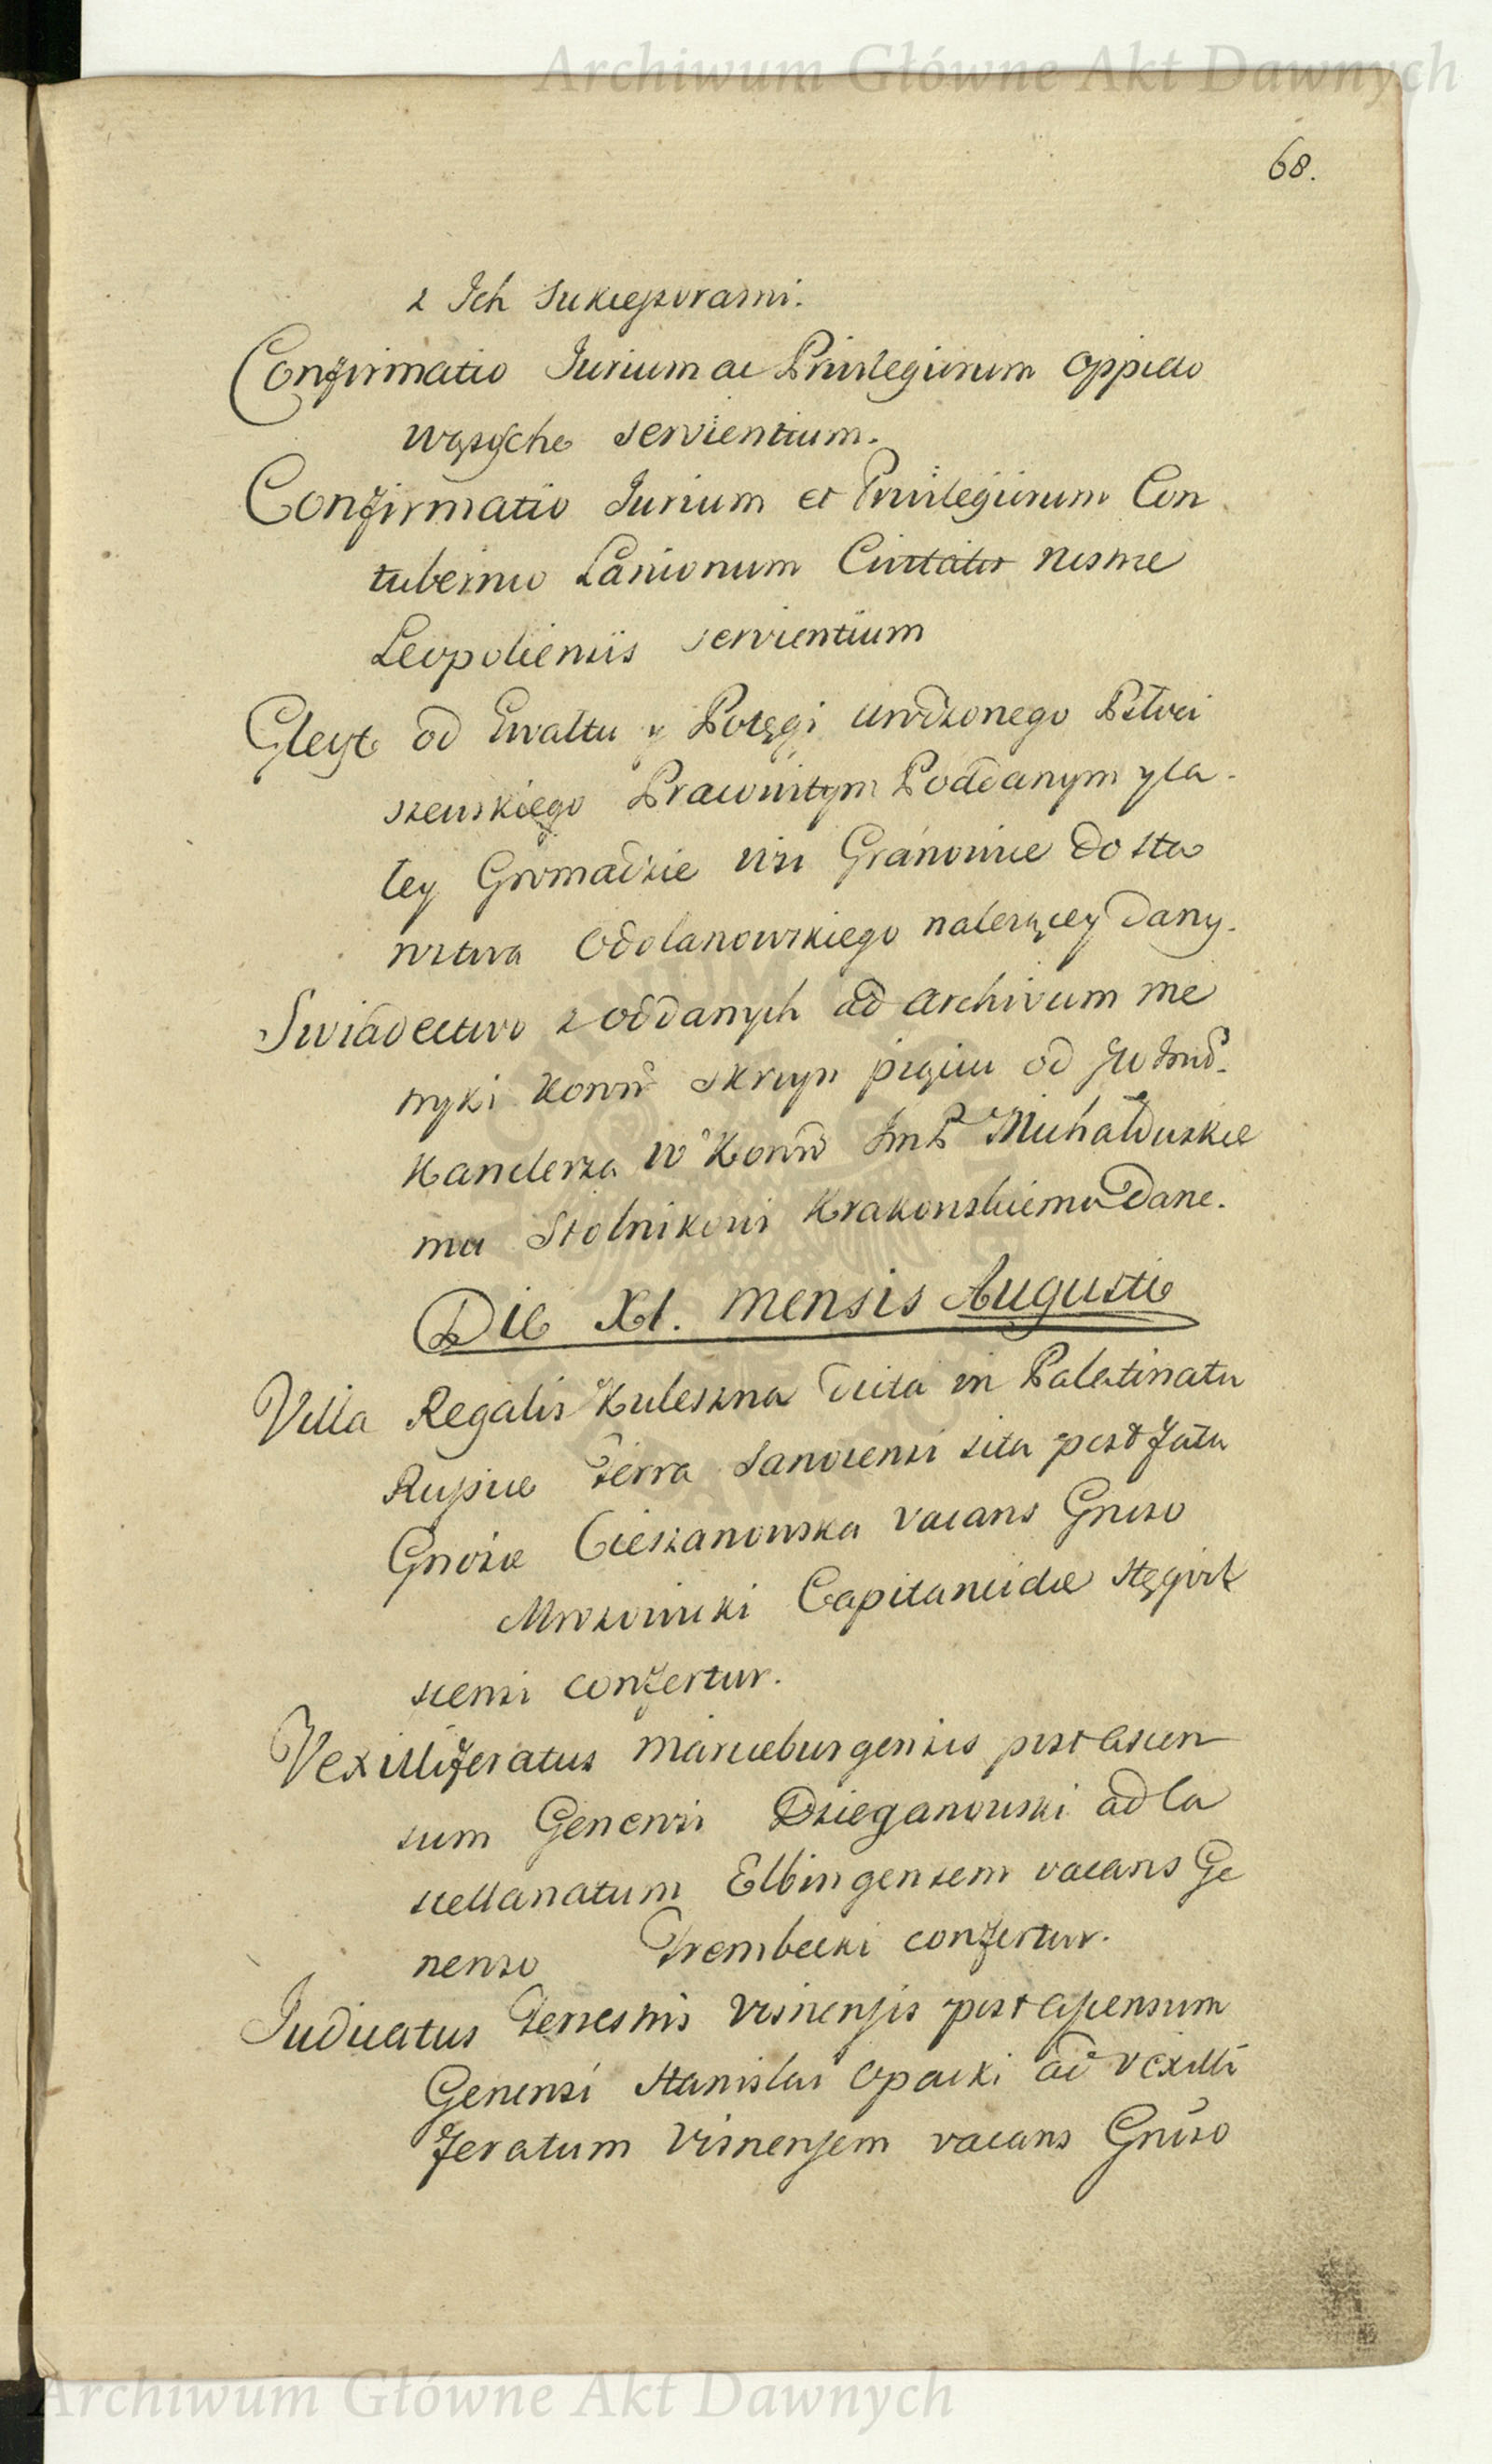 Archiwum Główne Akt Dawnych
68.
z Ich Sukcessorami.
Confirmatio Jurium ac Privilegiorum Oppido
servientium.
Confirmatio Jurium et Privilegiorum Con
tubernio Lanionum Civitatis nostræ
Leopoliensis servientium
Gleyt od Gwałtu y Potęgi urodzonego
Pracowitym Poddanym y ca
łey Gromadzie wsi Granowiec do sta
rostwa Odolanowskiego należącey Dany.
Swiadectwo z oddanych ad Archivum me
tryki Koron̄ skrzyn pięciu od
Kanclerza W Koron̄ ImP
mu Stolnikowi Krakowskiemu Dane.
Die XI. mensis Augusti
Villa Regalis Kuleszna dicta in Palatinatu
Russiæ Terra Sanocensi sita post fata
Gnosæ Cieszanowska vacans Gnoso
Mrozowicki Capitaneidæ Stęgwił
scensi confertur.
Vexilliferatus Marieburgensis post ascen
sum Generosi Dzieganowski ad Ca
stellanatum Elbingensem vacans Ge
neroso Trembecki confertur.
Judicatus Terrestris Visnensis post ascensum
Generosi Stanislai Opacki ad Vexilli
feratum Visnensem vacans Gnoso
Archiwum Główne Akt Dawnych